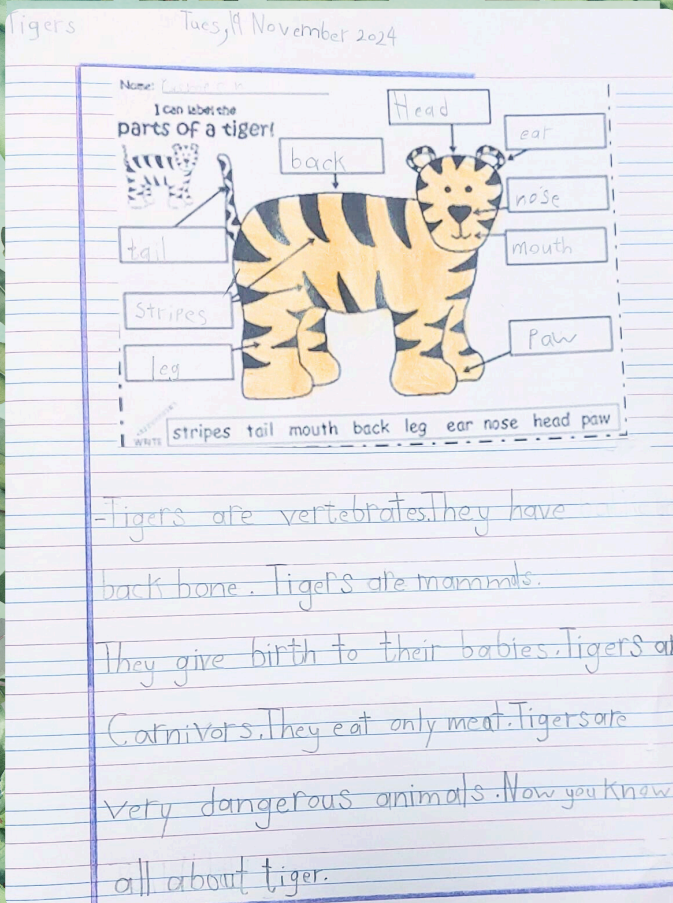 Tigers
Tues, 19 November 2024
Name:
I can label the
parts of a tiger!
Head
back
ear
nose
mouth
tail
stripes
leg
Paw
WRITE
stripes tail mouth back leg ear nose head paw
-Tigers are vertebrates.They have
back bone. Tigers are mammals.
They give birth to their babies.Tigers
Carnivors.They eat only meat.Tigers are
very dangerous animals.Now you know
all about tiger.